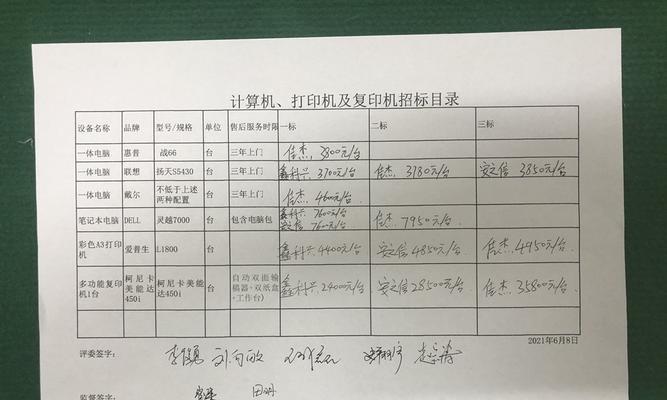 计算机、打印机及复印机招标目录
设备名称 品牌 型号/规格 单位 售后服务时限 一标 二标 三标
一体电脑 惠普 战66 台 三年上门 佳杰 3800元/台
一体电脑 联想 扬天S5430 台 三年上门 鑫科兴 3700元/台 佳杰 3780元/台 安之信 3850元/台
一体电脑 戴尔 不低于上述两种配置 台 三年上门 佳杰 4600元/台
笔记本电脑 DELL 灵越7000 台 包含电脑包 鑫科兴 7600元/台 安之信 7600元/台 佳杰 7950元/台
彩色A3打印机 爱普生 L1800 台 鑫科兴 4400元/台 安之信 4850元/台 佳杰 4950元/台
多功能复印机1台 柯尼卡美能达450i 柯尼卡美能达450i 台 自动双面输稿器+双纸盒+工作台) 鑫科兴 24000元/台 安之信 28500元/台 佳杰 35800元/台
2021年6月8日
评委签字：
监督签字：